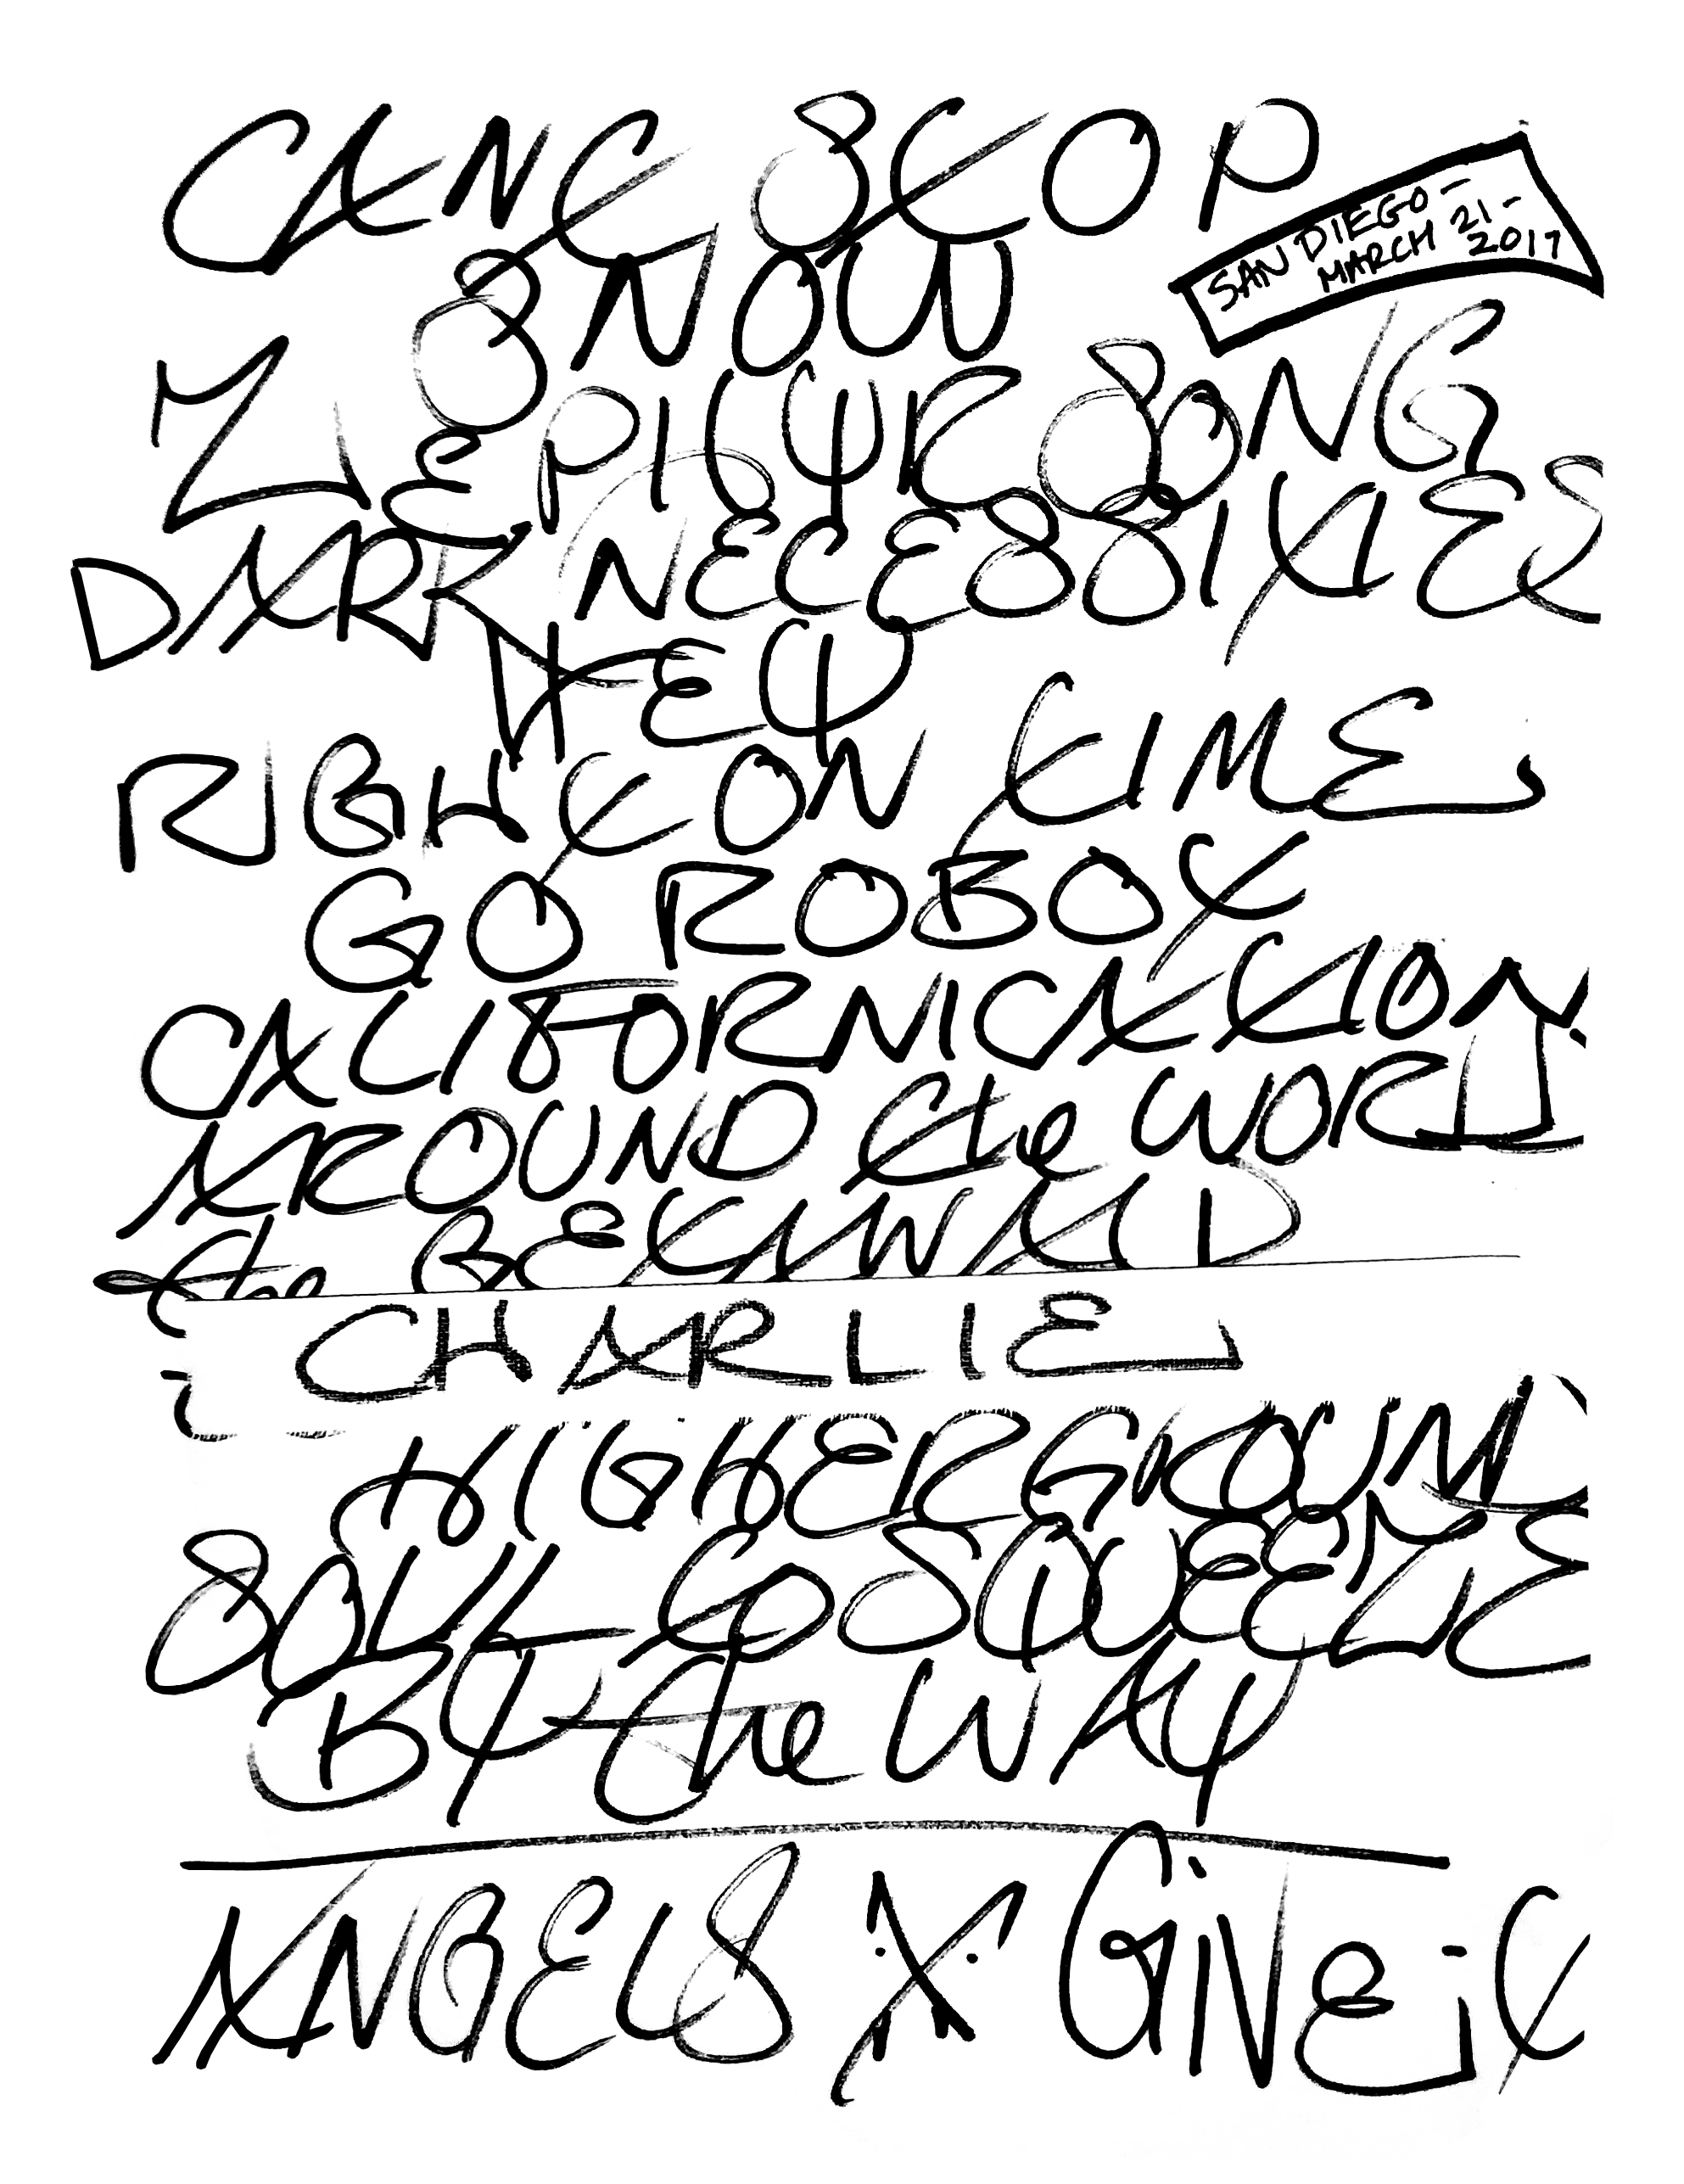 CANT STOP
SAN DIEGO-
MARCH 21-
2017
SNOW
ZEPHYR SONG
DARK NECESSITIES
HEY
RIGHT ON TIME
GO ROBOT
CALIFORNICATION
AROUND the WORLD
the GETAWAY
CHARLIE
HIGHER GROUND
SOUL TO SQUEEZE
BY the WAY
ANGELS X GIVE it